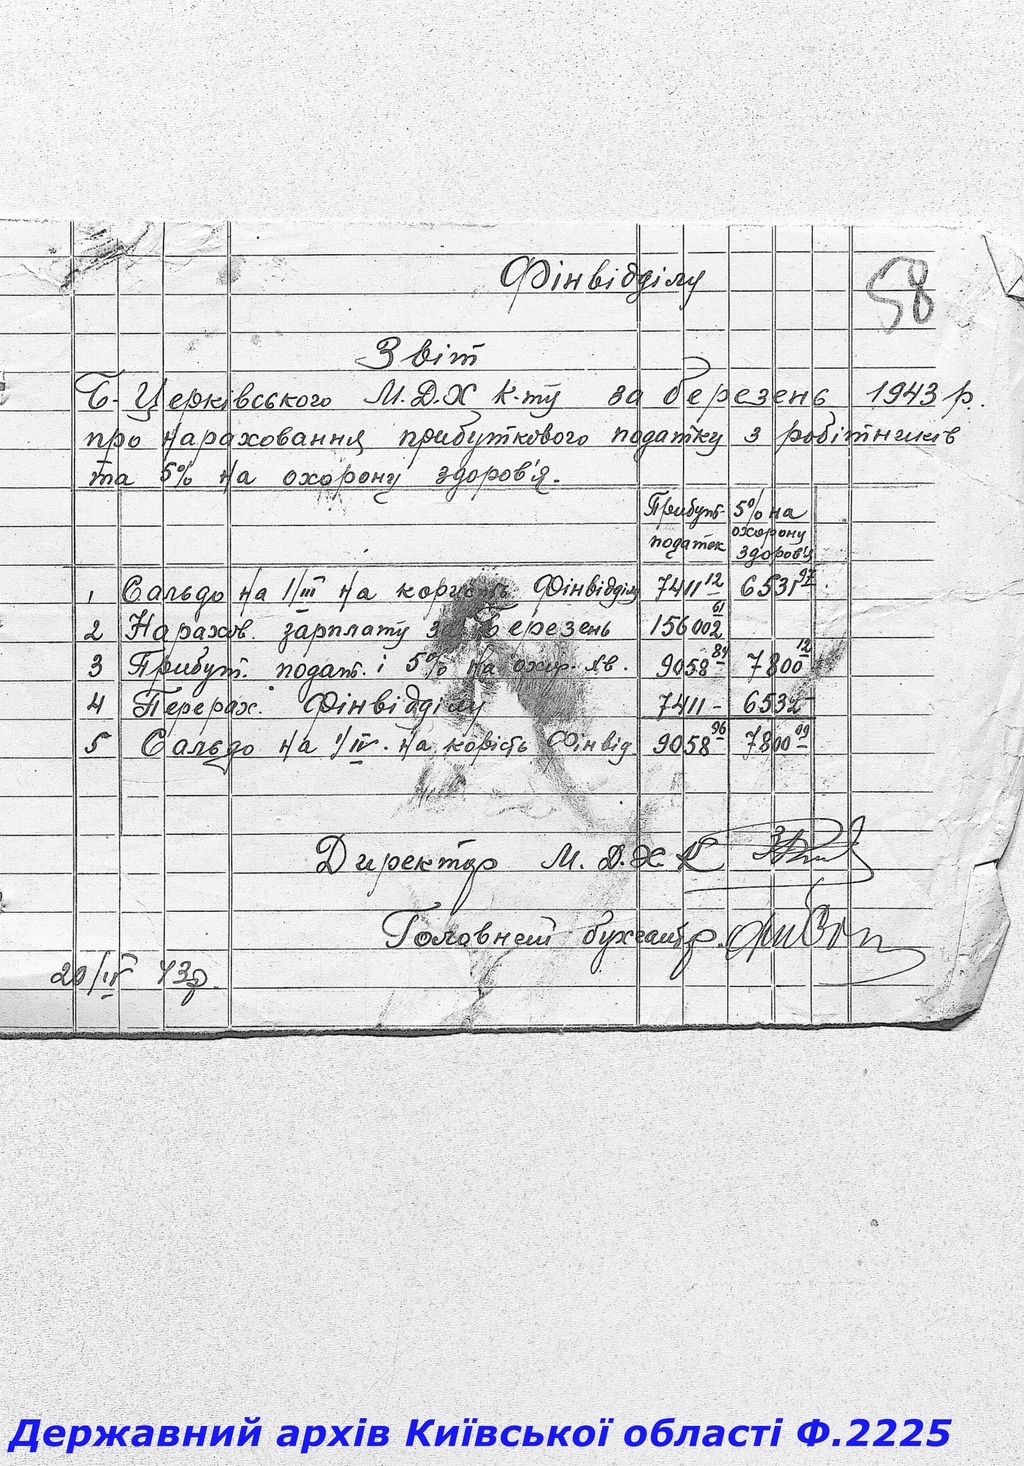 Фінвідділу
58
Звіт
Б-Церківського М.Д.Х К-ту за березень 1943 р.
про нараховання прибуткового податку з робітників
та 5% на охорону здоров'я.
Прибут. податек 5% на охорону здоровц
1 Сальдо на 1/III на користь Фінвідділу 7411 12 6531 97
2 Нарахов. зарплату за березень 156002 61
3 Прибут. подат. і 5% на охор. зв. 9058 84 7800 12
4 Перерах. Фінвідділу 7411 - 6532 -
5 Сальдо на 1/IV. на корість Фінвід 9058 96 7800 09
Директор М.Д.Х.К
Головнет бухгалтр.
20/IV 43р.
Державний архів Київської області Ф.2225